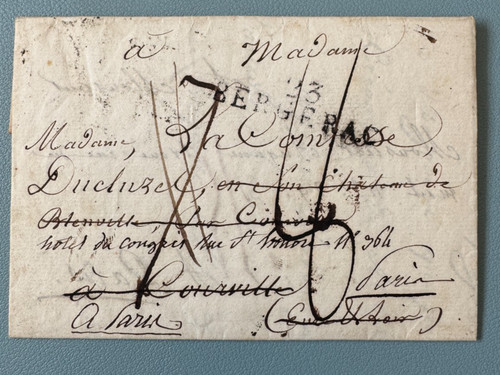 à Madame
BERGERAC
Madame, La Comtesse
Ducluzel, en son Château de
Blenville, par Courville
hotel du congrès rue St honoré N° 364
à Courville Paris
A Paris (Eure & Loir)